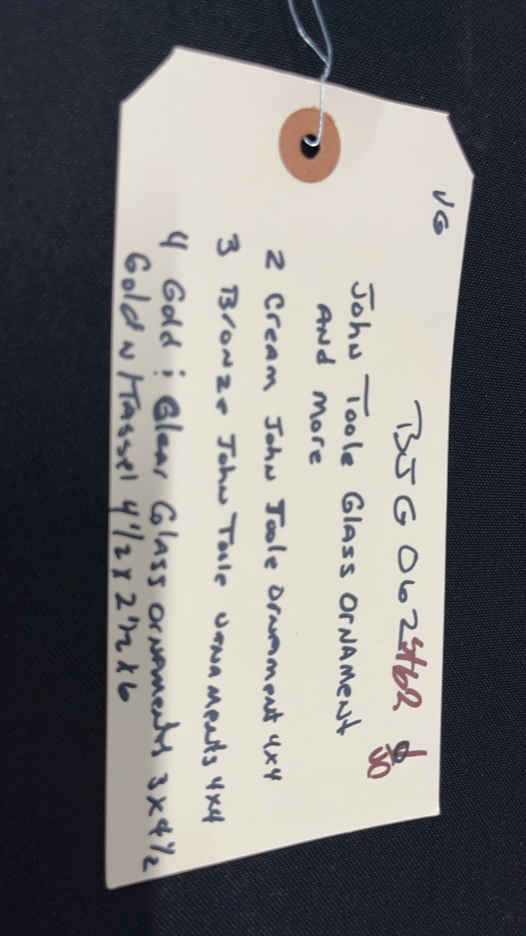 VG
BJG 062
John Toole Glass Ornament
And More
2 Cream John Toole Ornament 4x4
3 Bronze John Toole Ornaments 4x4
4 Gold & Clear Glass Ornaments 3x4 1/2
Gold w/Tassel 4 1/2 x 2 1/2 x 6